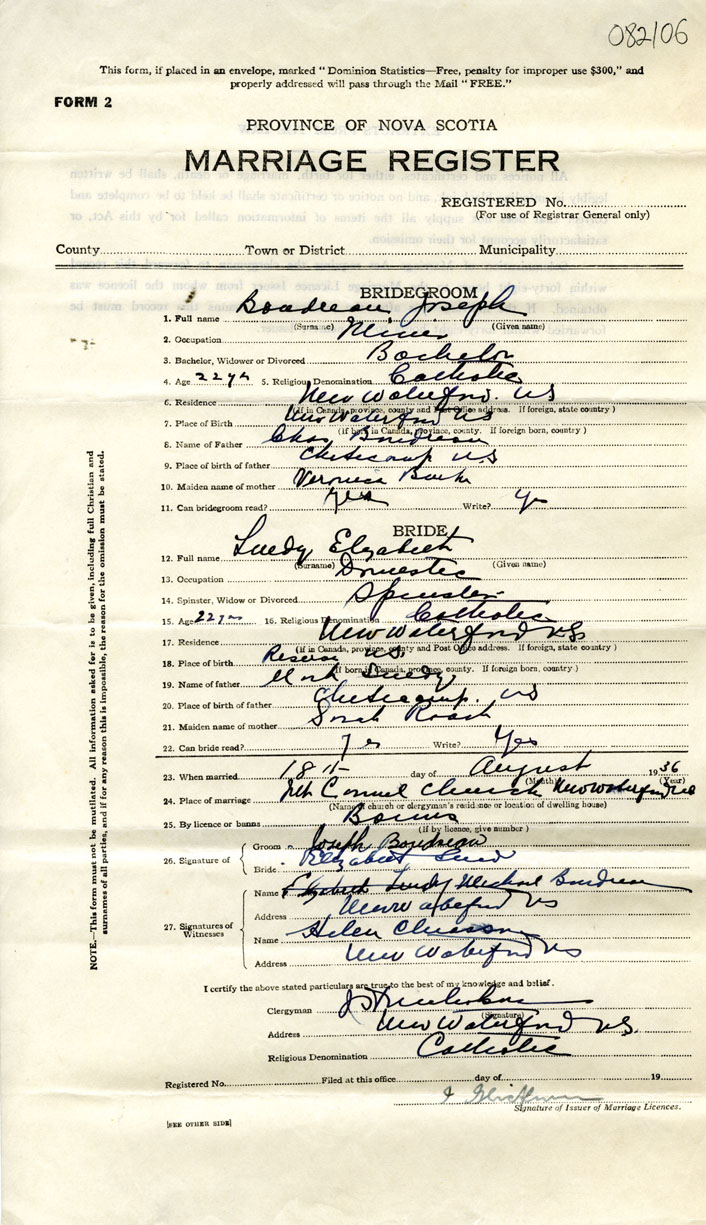 082106
This form, if placed in an envelope, marked "Dominion Statistics—Free, penalty for improper use $300," and
properly addressed will pass through the Mail "FREE."
FORM 2
PROVINCE OF NOVA SCOTIA
MARRIAGE REGISTER
REGISTERED No.
(For use of Registrar General only)
County Town or District Municipality
BRIDEGROOM
1. Full name Boudreau Joseph
(Surname) (Given name)
2. Occupation Miner
3. Bachelor, Widower or Divorced Bachelor
4. Age 22 yrs 5. Religious Denomination Catholic
6. Residence New Waterford. NS
(If in Canada, province, county and Post Office address. If foreign, state country)
7. Place of Birth New Waterford NS
(If born in Canada, province, county. If foreign born, country)
8. Name of Father Chas Boudreau
9. Place of birth of father Cheticamp NS
10. Maiden name of mother Veronica
11. Can bridegroom read? yes Write? yes
BRIDE
12. Full name Luedy Elizabeth
(Surname) (Given name)
13. Occupation Domestic
14. Spinster, Widow or Divorced Spinster
15. Age 22 yrs 16. Religious Denomination Catholic
17. Residence New Waterford NS
(If in Canada, province, county and Post Office address. If foreign, state country)
18. Place of birth Reserve NS.
(If born in Canada, province, county. If foreign born, country)
19. Name of father Mark Luedy
20. Place of birth of father Cheticamp. NS
21. Maiden name of mother Sarah Roach
22. Can bride read? yes Write? Yes
23. When married 18th day of August 1936
(Month) (Year)
24. Place of marriage Mt Carmel Church New Waterford NS
(Name of church or clergyman's residence or location of dwelling house)
25. By licence or banns Banns
(If by licence, give number)
26. Signature of Groom Joseph Boudreau
Bride Elizabeth
27. Signatures of Witnesses
Name Elizabeth Luedy Michael Boudreau
Address New Waterford NS
Name Helen Chiasson
Address New Waterford NS
I certify the above stated particulars are true to the best of my knowledge and belief.
Clergyman
(Signature)
Address New Waterford N.S.
Religious Denomination Catholic
Registered No. Filed at this office day of 19
Signature of Issuer of Marriage Licences.
[SEE OTHER SIDE]
NOTE.—This form must not be mutilated. All information asked for is to be given, including full Christian and
surnames of all parties, and if for any reason this is impossible, the reason for the omission must be stated.